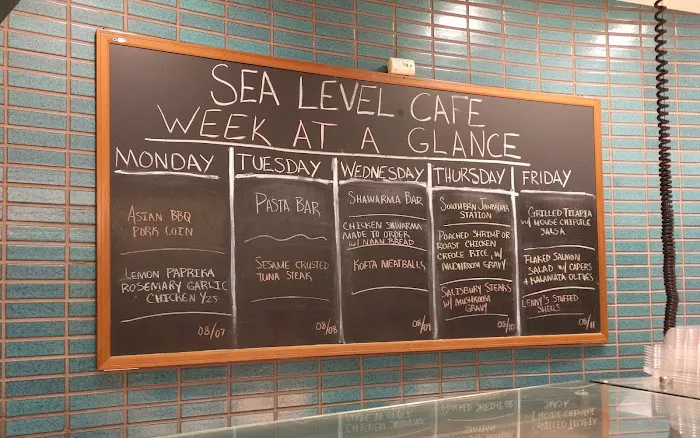 SEA LEVEL CAFE
WEEK AT A GLANCE
MONDAY
ASIAN BBQ
PORK LOIN
LEMON PAPRIKA
ROSEMARY GARLIC
CHICKEN Y25
08/07
TUESDAY
PASTA BAR
SESAME CRUSTED
TUNA STEAK
08/08
WEDNESDAY
SHAWARMA BAR
CHICKEN SHAWARMA
MADE TO ORDER
W/ NAAN BREAD
KOFTA MEATBALLS
08/09
THURSDAY
SOUTHERN JAMBALAYA
STATION
POACHED SHRIMP OR
ROAST CHICKEN
CREOLE RICE, W/
MUSHROOM GRAVY
SALISBURY STEAKS
W/ MUSHROOM
GRAVY
08/10
FRIDAY
GRILLED TILAPIA
W/ HOUSE CHIPOTLE
SALSA
FLAKED SALMON
SALAD W/ CAPERS
+ KALAMATA OLIVES
LENNY'S STUFFED
SHELLS
08/11